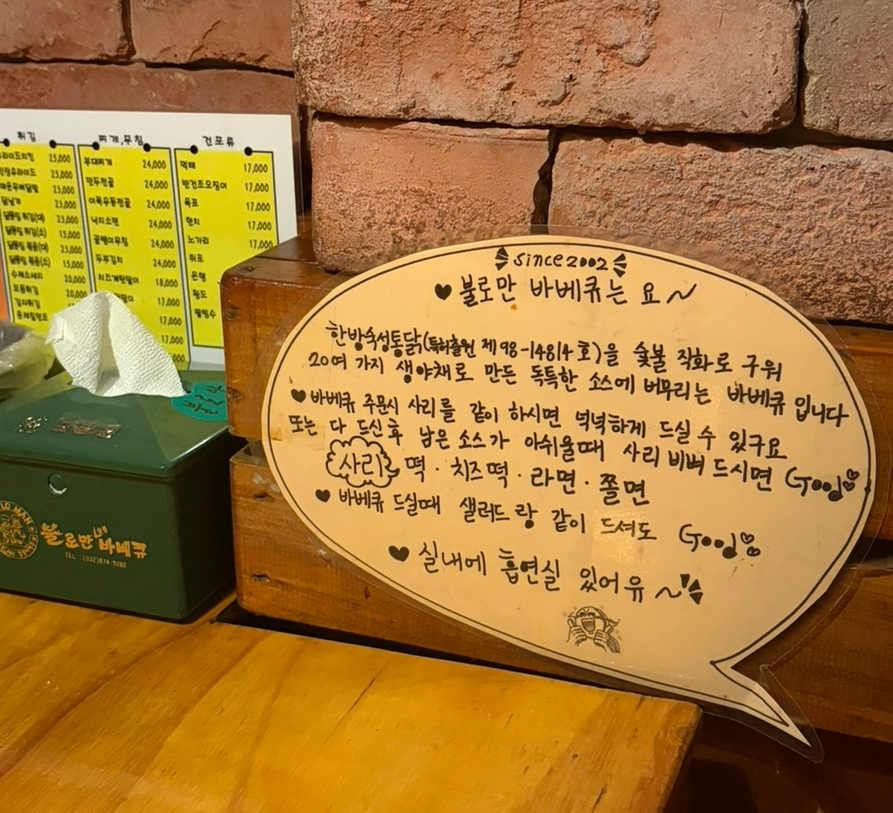 튀김
25,000
25,000
23,000
23,000
25,000
15,000
25,000
15,000
20,000
20,000
찌개,무침
부대찌개 24,000
만두전골 24,000
어묵우동전골 24,000
낙지소면 24,000
골뱅이무침 24,000
두부김치 24,000
치즈계란말이 18,000
17,000
17,000
17,000
건포류
먹태 17,000
반건조오징어 17,000
육포 17,000
한치 17,000
노가리 17,000
쥐포
은행
황도
since2002
♥불로만 바베큐는 요~
한방숙성통닭(특허출원 제98-14814호)을 숯불 직화로 구워
20여 가지 생야채로 만든 독특한 소스에 버무리는 바베큐 입니다
♥바베큐 주문시 사리를 같이 하시면 넉넉하게 드실 수 있구요
또는 다 드신후 남은 소스가 아쉬울때 사리 비벼 드시면 Good
사리 떡·치즈떡·라면·쫄면
♥바베큐 드실때 샐러드랑 같이 드셔도 Good
♥실내에 흡연실 있어유~
불로만 바베큐
TEL (032)874-9282